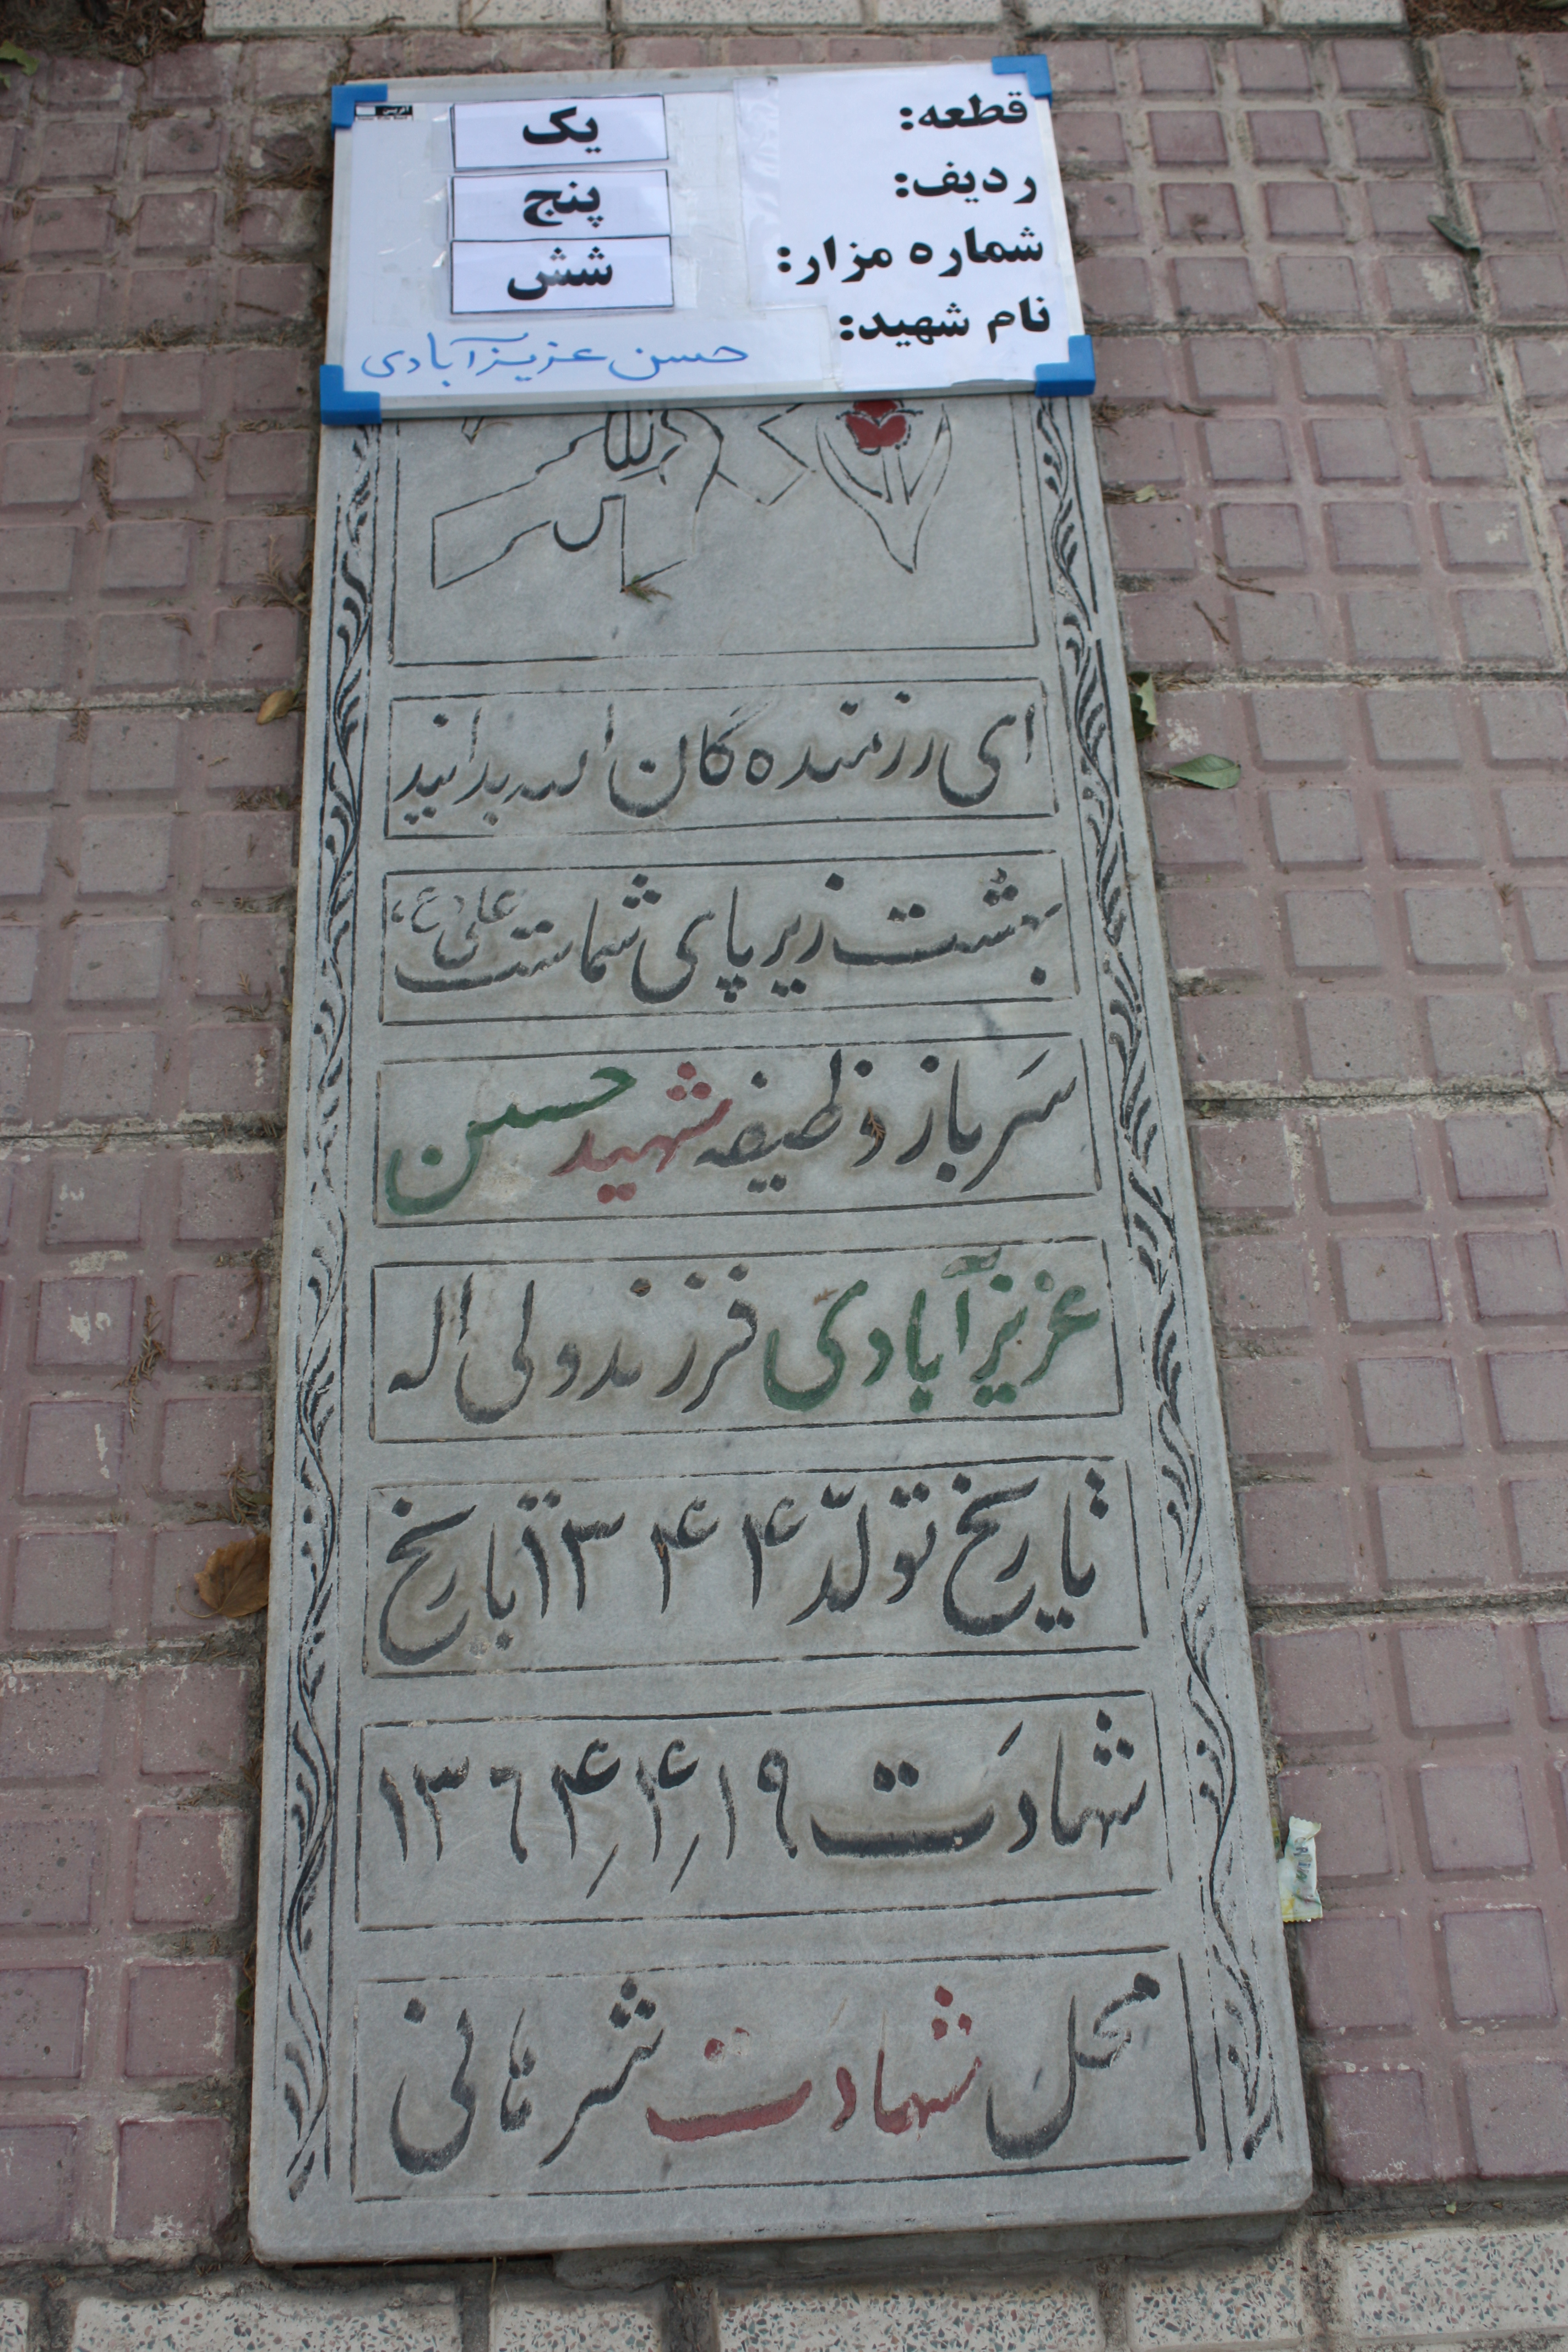 قطعه: یک
ردیف: پنج
شماره مزار: شش
نام شهید: حسن عزیزآبادی
ای رزمنده گان اله بدانید
بهشت زیر پای شماست علی (ع)
سرباز وظیفه شهید حسن
عزیزآبادی فرزند ولی اله
تاریخ تولد ۱۳۴۴ تاریخ
شهادت ۱۹/۴/۱۳۶۴
محل شهادت شرهانی